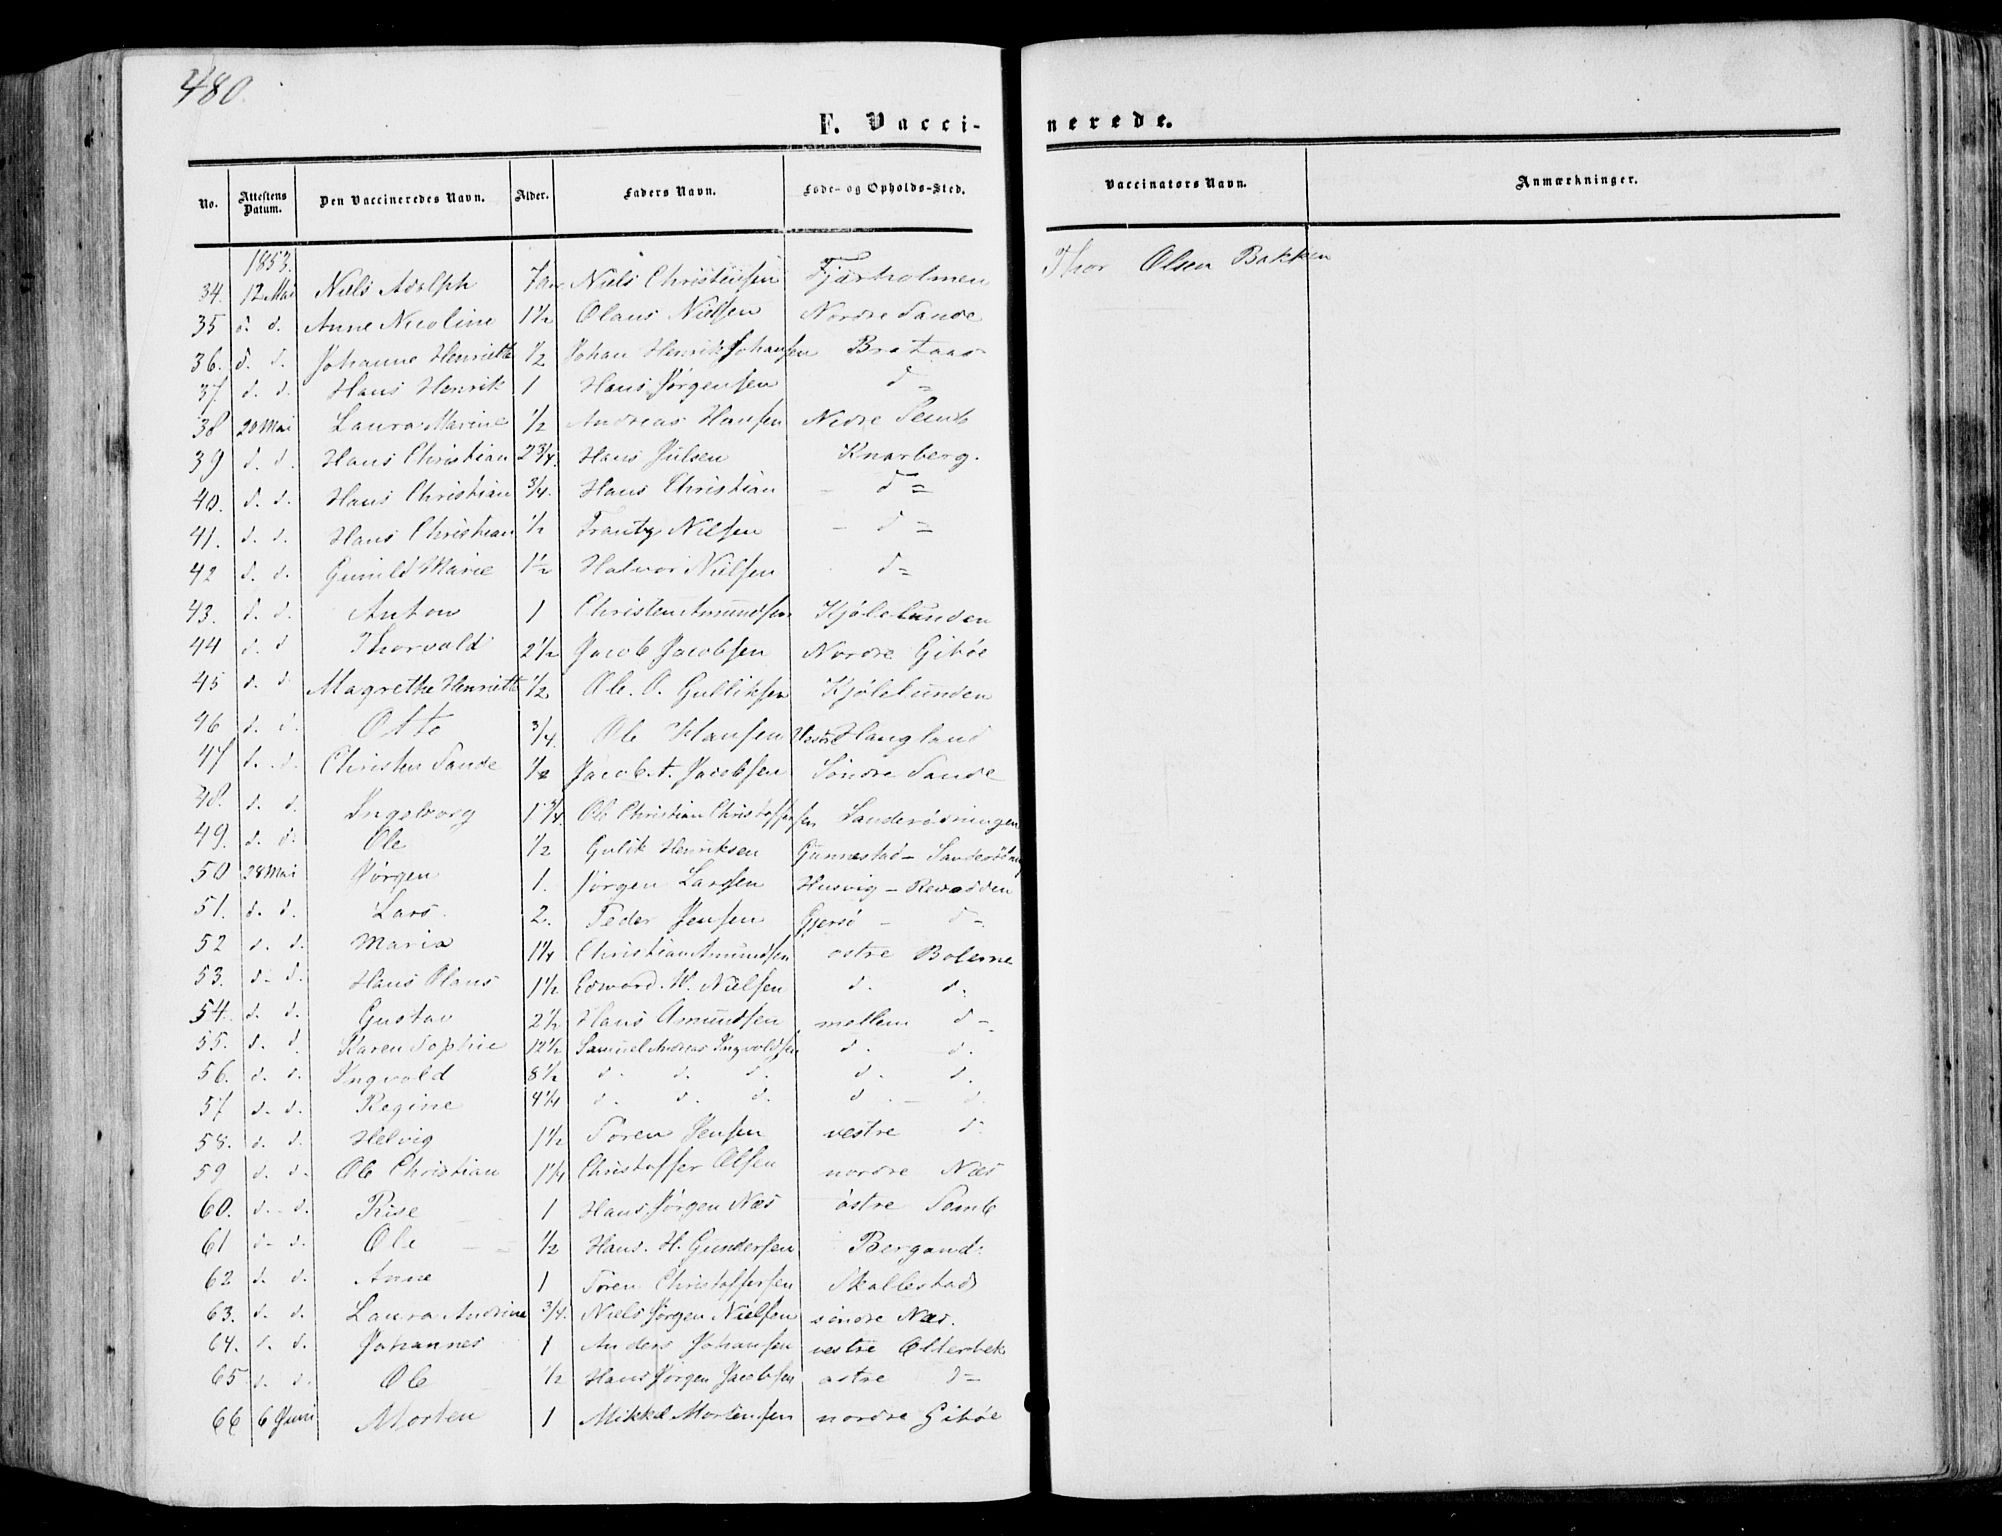 480.
F. Vacci- nerede.
No. Attestens Datum. Den Vaccineredes Navn. Alder. Faders Navn. Føde- og Opholds-Sted. Vaccinators Navn. Anmærkninger.
1853.
34. 12 Mai Niels Adolph 7 Niels Christensen Fjærholmen Thor Olsen Bakken
35 d. d. Anne Nicoline 1½ Olaus Nielsen Nordre Sande
36. d. d. Johanne Henriette ½ Johan Henrik Johansen Brataas
37 d. d. Hans Henrik 1 Hans Jørgensen d =
38 20 Mai Laura Marine ½ Andreas Hansen Nedre Semb
39 d. d. Hans Christian 2¾. Hans Julsen Knarberg.
40. d. d. Hans Christian ¾. Hans Christian - d =
41. d. d. Hans Christian ½ Frantz Nilsen - d =
42 d. d. Gunild Marie 1½ Halvor Nielsen d =
43. d. d. Anton 1 Christen Amundsen Kjølelunden
44 d. d Thorvald 2½ Jacob Jacobsen Nordre Gibøe
45 d. d. Magrethe Henriette ½ Ole. O. Gulliksen Kjølelunden
46 d. d. Otto ¾. Ole Hansen Vestre Haugland
47 d. d. Christen Sande ½ Jacob A. Jacobsen Søndre Sande
48. d. d. Ingeborg 1¾. Ole Christian Christoffersen Sanderødningen
49. d. d. Ole ½ Gulik Henriksen Gunnestad -
50 28 Mai Jørgen 1. Jørgen Larsen Husvig -
51. d. d. Lars. 2. Peder Jensen Gjersø - d -
52 d. d. Maria 1¼ Christian Amundsen østre Bolerne
53. d. d. Hans Olaus 1½ Edward. W. Nielsen d. d.
54. d. d. Gustav 2½ Hans Amundsen mellem d -
55. d. d. Karen Sophie 12½ Samuel Andreas Ingvoldsen d. d.
56. d. d. Ingvold 8½ d. d. d. d. d.
57 d. d. Regine 4¼ d. d. d. d. - d.
58. d. d. Helvig 1½ Søren Jensen vestre d.
59 d. d. Ole Christian 1¼ Christoffer Olsen nordre Næs
60. d. d. Rise 1 Hans Jørgen Næs østre Semb
61 d. d. Ole ½ Hans. H. Gundersen Bergand:
62 d. d. Anne 1 Søren Christoffersen Skallestad
63. d. d. Laura Andrine ¾. Niels Jørgen Nielsen søndre Næs.
64. d. d. Johannes 1 Anders Johansen vestre Olderbek
65 d. d. Ole ½ Hans Jørgen Jacobsen østre d =
66 6 Juni Morten 1 Mikkel Mortensen nordre Gibøe